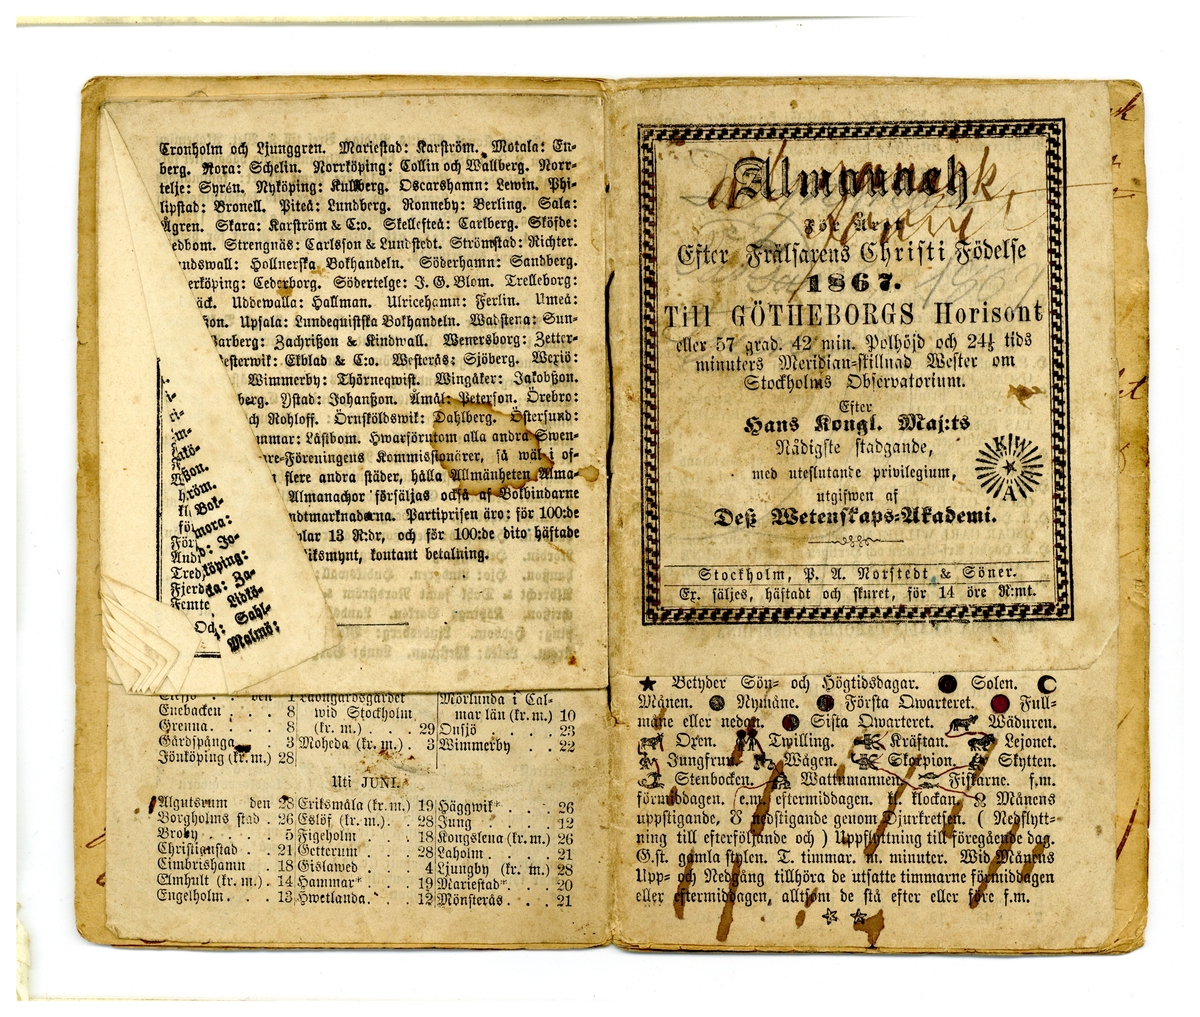 Cronholm och Ljunggren. Mariestad: Karström. Motala: En-
berg. Nora: Schelin. Norrköping: Collin och Wallberg. Norr-
telje: Syrén. Nyköping: Kullberg. Oscarshamn: Lewin. Phi-
lipstad: Bronell. Piteå: Lundberg. Ronneby: Berling. Sala:
Ågren. Skara: Karström & C:o. Skellefteå: Carlberg. Sköfde:
edbom. Strengnäs: Carlsson & Lundstedt. Strömstad: Richter.
ndswall: Hollnerska Bokhandeln. Söderhamn: Sandberg.
erköping: Cederborg. Södertelge: J. G. Blom. Trelleborg:
äck. Uddewalla: Hallman. Ulricehamn: Ferlin. Umeå:
ßon. Upsala: Lundequistska Bokhandeln. Wadstena: Sun-
Warberg: Zachrißon & Kindwall. Wenersborg: Zetter-
esterwik: Ekblad & C:o. Westerås: Sjöberg. Wexiö:
Wimmerby: Thörneqwist. Wingåker: Jakobßon.
berg. Ystad: Johanßon. Åmål: Peterson. Örebro:
ch Rohloff. Örnsköldswik: Dahlberg. Östersund:
mmar: Låstbom. Hwarförutom alla andra Swen-
are-Föreningens Kommissionärer, så wäl i of-
flere andra städer, hålla Allmänheten Alma-
Almanachor försäljas också af Bokbindarne
ndtmarknaderna. Partiprisen äro: för 100:de
plar 13 R:dr, och för 100:de dito häftade
iksmynt, kontant betalning.
i-
ri-
öm-
akö-
ßon.
hröm.
kl. Bok-
för mora:
För d: Jo-
And köping:
Tred da: Za-
Fjerd Lidkö-
Femte : Sahl-
Och Malmö:
Eksjö . . den 1 Ladugårdsgärdet Mörlunda i Cal-
Enebacken . . . 8 wid Stockholm mar län (kr. m.) 10
Grenna . . . . 8 (kr. m.) . . . 29 Onsjö . . . . 23
Gårdspånga . . 3 Moheda (kr. m.) . 3 Wimmerby . . . 22
Jönköping (kr. m.) 28
Uti JUNI.
Algutsrum den 28 Eriksmåla (kr. m.) 19 Häggwik* . . . 26
Borgholms stad . 26 Eslöf (kr. m.) . . 28 Jung . . . . 12
Broby . . . . 5 Figeholm . . . 18 Kongslena (kr. m.) 26
Christianstad . . 21 Getterum . . . 28 Laholm . . . . 21
Cimbrishamn . . 18 Gislawed . . . 4 Ljungby (kr. m.) 28
Elmhult (kr. m.) . 14 Hammar* . . . 19 Mariestad* . . . 20
Engelholm . . . 13 Hwetlanda . . . 12 Mönsterås . . . 21
Almanach
För Året
Efter Frälsarens Christi Födelse
1867.
Till GÖTHEBORGS Horisont
eller 57 grad. 42 min. Polhöjd och 24½ tids
minuters Meridian-skillnad Wester om
Stockholms Observatorium.
Efter
Hans Kongl. Maj:ts
Nådigste stadgande,
med uteslutande privilegium,
utgifwen af
Deß Wetenskaps-Akademi.
K W A
Stockholm, P. A. Norstedt & Söner.
Ex. säljes, häftadt och skuret, för 14 öre R:mt.
Betyder Sön- och Högtidsdagar. Solen.
Månen. Nymåne. Första Qwarteret. Full-
måne eller nedan. Sista Qwarteret. Wäduren.
Oxen. Twilling. Kräftan. Lejonet.
Jungfrun. Wågen. Skorpion. Skytten.
Stenbocken. Wattumannen. Fiskarne. f.m.
förmiddagen. e.m. eftermiddagen. kl. klockan. ☊ Månens
uppstigande, ☋ nedstigande genom Djurkretsen. ( Nedflytt-
ning till efterföljande och ) Uppflyttning till föregående dag.
G.st. gamla stylen. T. timmar. m. minuter. Wid Månens
Upp- och Nedgång tillhöra de utsatte timmarne förmiddagen
eller eftermiddagen, alltsom de stå efter eller före f.m.